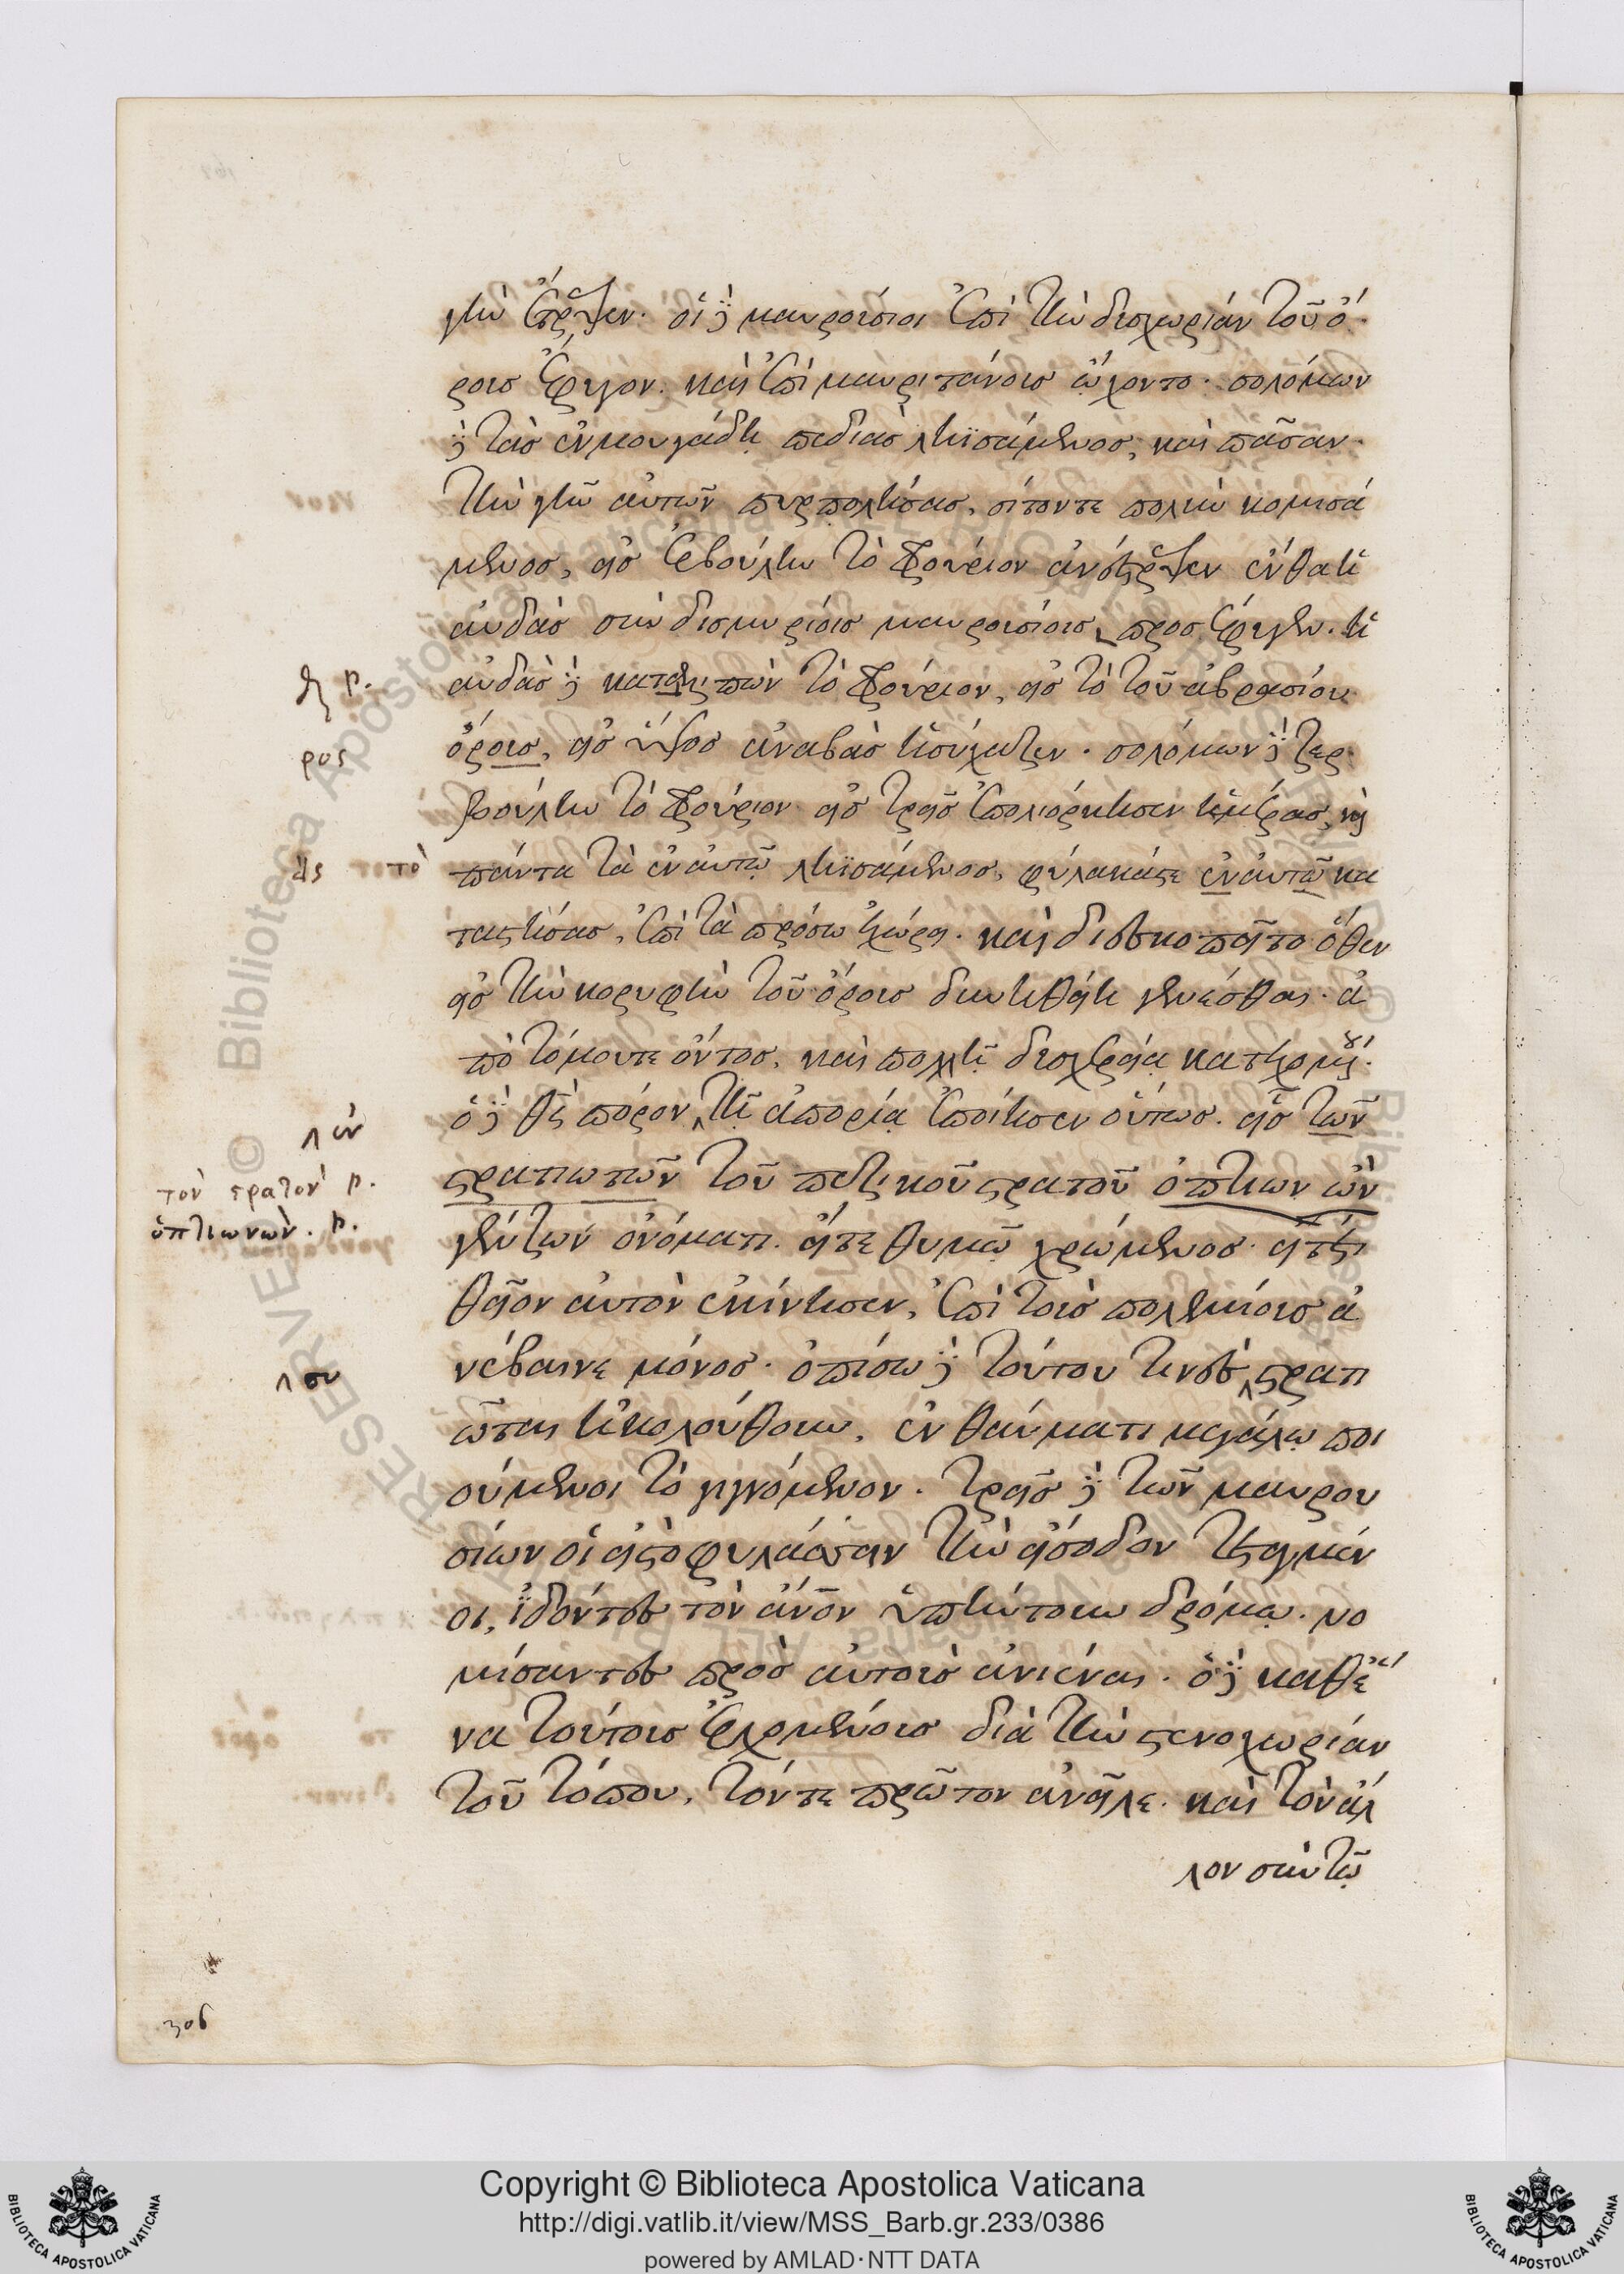 γὴν ἔτρεψεν. οἱ δὲ μαυρούσιοι ἐπὶ τὴν δυσχωρίαν τοῦ ὄ
ρους ἔφυγον. καὶ ἐπὶ μαυριτάνους ᾤχοντο. σολόμων
δὲ τὰς ἐν μουγάδη πεδιὰς ληϊσάμενος, καὶ πᾶσαν
τὴν γῆν αὐτῶν πυρπολήσας, σῖτόν τε πολὺν κομισά
μενος, εἰς ζερβούλην τὸ φρούριον ἀνέστρεψεν ἔνθα ἢ
αύδας σὺν δισμυρίοις μαυρουσίοις προσέφυγεν. ἢ
αύδας δὲ καταλειπὼν τὸ φρούριον, εἰς τὸ τοῦ αὐρασίου
ὄρους, εἰς ὕψος ἀναβὰς ἡσύχαζεν. σολόμων δὲ ζερ
βούλην τὸ φρούριον εἰς τρεῖς ἐπολιόρκησεν ἡμέρας, καὶ
πάντα τὰ ἐν αὐτῷ ληϊσάμενος, φύλακάς τε ἐν αὐτῷ κα
ταστήσας, ἐπὶ τὰ πρόσω ἐχώρει. καὶ διεσκοπεῖτο ὅθεν
εἰς τὴν κορυφὴν τοῦ ὄρους δυνηθείη γενέσθαι. ἀ
πὸ τόμου τε ὄντος, καὶ πολλῇ δυσχερείᾳ
ὁ δὲ θεὸς πόρον τῇ ἀπορίᾳ ἐποίησεν οὕτως. εἷς τῶν
στρατιωτῶν τοῦ πεζικοῦ στρατοῦ ὀπτίων ὢν
γένζων ὀνόματι. εἴτε θυμῷ χρώμενος. εἴτε τι
θεῖον αὐτὸν ἐκίνησεν, ἐπὶ τοὺς πολεμίους ἀ
νέβαινε μόνος. ὀπίσω δὲ τούτου τινὲς στρατι
ῶται ἠκολούθουν, ἐν θαύματι μεγάλῳ ποι
ούμενοι τὸ γιγνόμενον. τρεῖς δὲ τῶν μαυρου
σίων οἱ εἰς τὸ φυλάσσειν τὴν εἴσοδον τεταγμέν
οι, ἰδόντες τὸν ἄνον ὑπήντουν δρόμῳ. νο
μίσαντες πρὸς αὐτοὺς ἀνιέναι. ὁ δὲ καθ' ἕ
να τούτοις ἐρχομένοις διὰ τὴν στενοχωρίαν
τοῦ τόπου, τόν τε πρῶτον ἀνεῖλε. καὶ τὸν ἄλ
λον σὺν τῷ
λη p.
ρος
εἰς τοπὸ
λὸν
τὸν στρατὸν p.
ὀπτιωνων. p.
λ συ
306
Copyright © Biblioteca Apostolica Vaticana
http://digi.vatlib.it/view/MSS_Barb.gr.233/0386
powered by AMLAD·NTT DATA
BIBLIOTECA APOSTOLICA VATICANA
BIBLIOTECA APOSTOLICA VATICANA